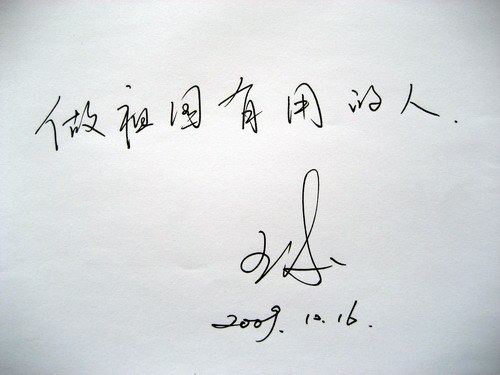 做祖国有用的人.
2009.10.16.